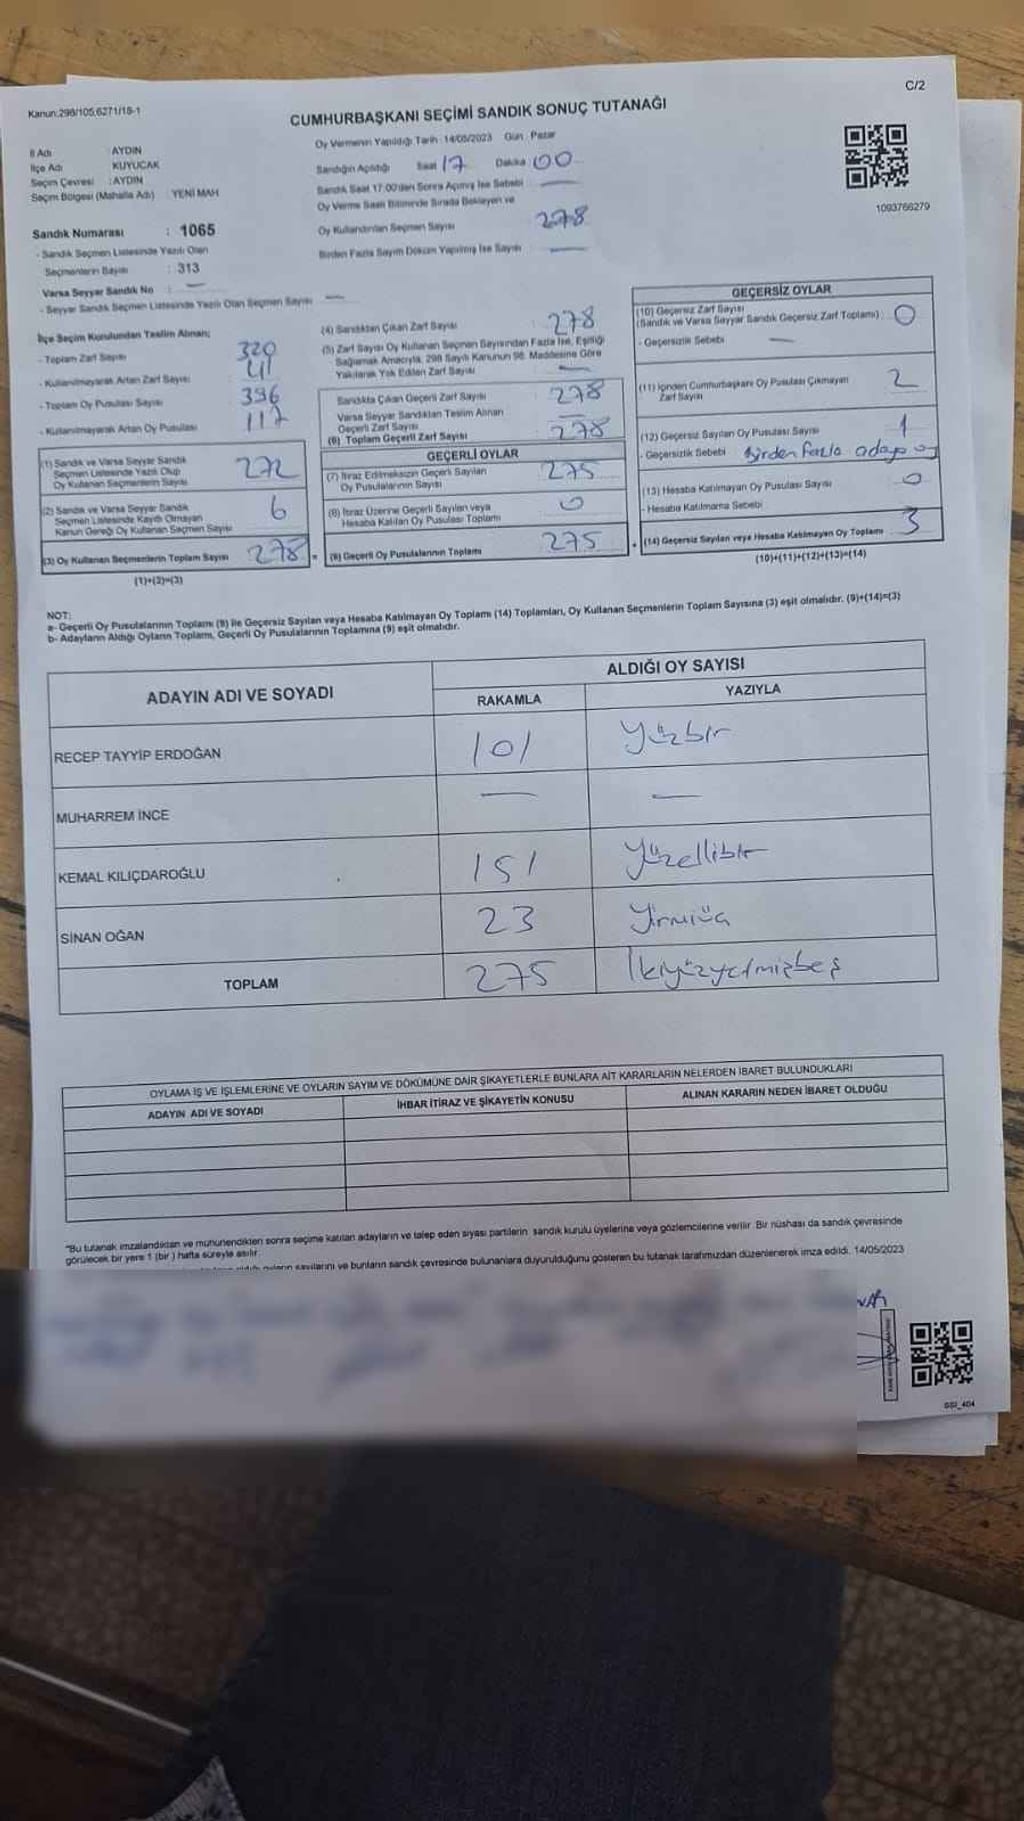 C/2
Kanun:298/105,6271/18-1
CUMHURBAŞKANI SEÇİMİ SANDIK SONUÇ TUTANAĞI
İl Adı AYDIN
İlçe Adı KUYUCAK
Seçim Çevresi : AYDIN
Seçim Bölgesi (Mahalla Adı) YENİ MAH
Oy Vermenin Yapıldığı Tarih : 14/05/2023 Gün : Pazar
Sandığın Açıldığı Saat 17 Dakika 00
Sandık Saat 17:00'den Sonra Açılmış İse Sebebi —
Oy Verme Saati Bitiminde Sırada Bekleyen ve
Oy Kullandırılan Seçmen Sayısı 278
Birden Fazla Sayım Döküm Yapılmış İse Sayısı —
1093766279
Sandık Numarası : 1065
- Sandık Seçmen Listesinde Yazılı Olan
Seçmenlerin Sayısı : 313
Varsa Seyyar Sandık No —
- Seyyar Sandık Seçmen Listesinde Yazılı Olan Seçmen Sayısı —
İlçe Seçim Kurulundan Teslim Alınan;
- Toplam Zarf Sayısı 320
- Kullanılmayarak Artan Zarf Sayısı 41
- Toplam Oy Pusulası Sayısı 396
- Kullanılmayarak Artan Oy Pusulası 117
(1) Sandık ve Varsa Seyyar Sandık
Seçmen Listesinde Yazılı Olup
Oy Kullanan Seçmenlerin Sayısı 272
(2) Sandık ve Varsa Seyyar Sandık
Seçmen Listesinde Kayıtlı Olmayan
Kanun Gereği Oy Kullanan Seçmen Sayısı 6
(3) Oy Kullanan Seçmenlerin Toplam Sayısı 278 =
(1)+(2)=(3)
(4) Sandıktan Çıkan Zarf Sayısı : 278
(5) Zarf Sayısı Oy Kullanan Seçmen Sayısından Fazla İse, Eşitliği
Sağlamak Amacıyla, 298 Sayılı Kanunun 98. Maddesine Göre
Yakılarak Yok Edilen Zarf Sayısı —
Sandıkta Çıkan Geçerli Zarf Sayısı 278
Varsa Seyyar Sandıktan Teslim Alınan
Geçerli Zarf Sayısı —
(6) Toplam Geçerli Zarf Sayısı 278
GEÇERLİ OYLAR
(7) İtiraz Edilmeksizin Geçerli Sayılan
Oy Pusulalarının Sayısı 275
(8) İtiraz Üzerine Geçerli Sayılan veya
Hesaba Katılan Oy Pusulası Toplamı 0
(9) Geçerli Oy Pusulalarının Toplamı 275 +
GEÇERSİZ OYLAR
(10) Geçersiz Zarf Sayısı
(Sandık ve Varsa Seyyar Sandık Geçersiz Zarf Toplamı) : 0
- Geçersizlik Sebebi —
(11) İçinden Cumhurbaşkanı Oy Pusulası Çıkmayan
Zarf Sayısı 2
(12) Geçersiz Sayılan Oy Pusulası Sayısı 1
- Geçersizlik Sebebi Birden fazla adaya oy
(13) Hesaba Katılmayan Oy Pusulası Sayısı 0
- Hesaba Katılmama Sebebi
(14) Geçersiz Sayılan veya Hesaba Katılmayan Oy Toplamı 3
(10)+(11)+(12)+(13)=(14)
NOT:
a- Geçerli Oy Pusulalarının Toplamı (9) ile Geçersiz Sayılan veya Hesaba Katılmayan Oy Toplamı (14) Toplamları, Oy Kullanan Seçmenlerin Toplam Sayısına (3) eşit olmalıdır. (9)+(14)=(3)
b- Adayların Aldığı Oyların Toplamı, Geçerli Oy Pusulalarının Toplamına (9) eşit olmalıdır.
ADAYIN ADI VE SOYADI ALDIĞI OY SAYISI
RAKAMLA YAZIYLA
RECEP TAYYİP ERDOĞAN 101 Yüzbir
MUHARREM İNCE — —
KEMAL KILIÇDAROĞLU 151 Yüzellibir
SİNAN OĞAN 23 Yirmiüç
TOPLAM 275 İkiyüzyetmişbeş
OYLAMA İŞ VE İŞLEMLERİNE VE OYLARIN SAYIM VE DÖKÜMÜNE DAİR ŞİKAYETLERLE BUNLARA AİT KARARLARIN NELERDEN İBARET BULUNDUKLARI
ADAYIN ADI VE SOYADI İHBAR İTİRAZ VE ŞİKAYETİN KONUSU ALINAN KARARIN NEDEN İBARET OLDUĞU
"Bu tutanak imzalandıktan ve mühürlendikten sonra seçime katılan adayların ve talep eden siyasi partilerin sandık kurulu üyelerine veya gözlemcilerine verilir. Bir nüshası da sandık çevresinde
görülecek bir yere 1 (bir) hafta süreyle asılır.
oyların sayılarını ve bunların sandık çevresinde bulunanlara duyurulduğunu gösteren bu tutanak tarafımızdan düzenlenerek imza edildi. 14/05/2023